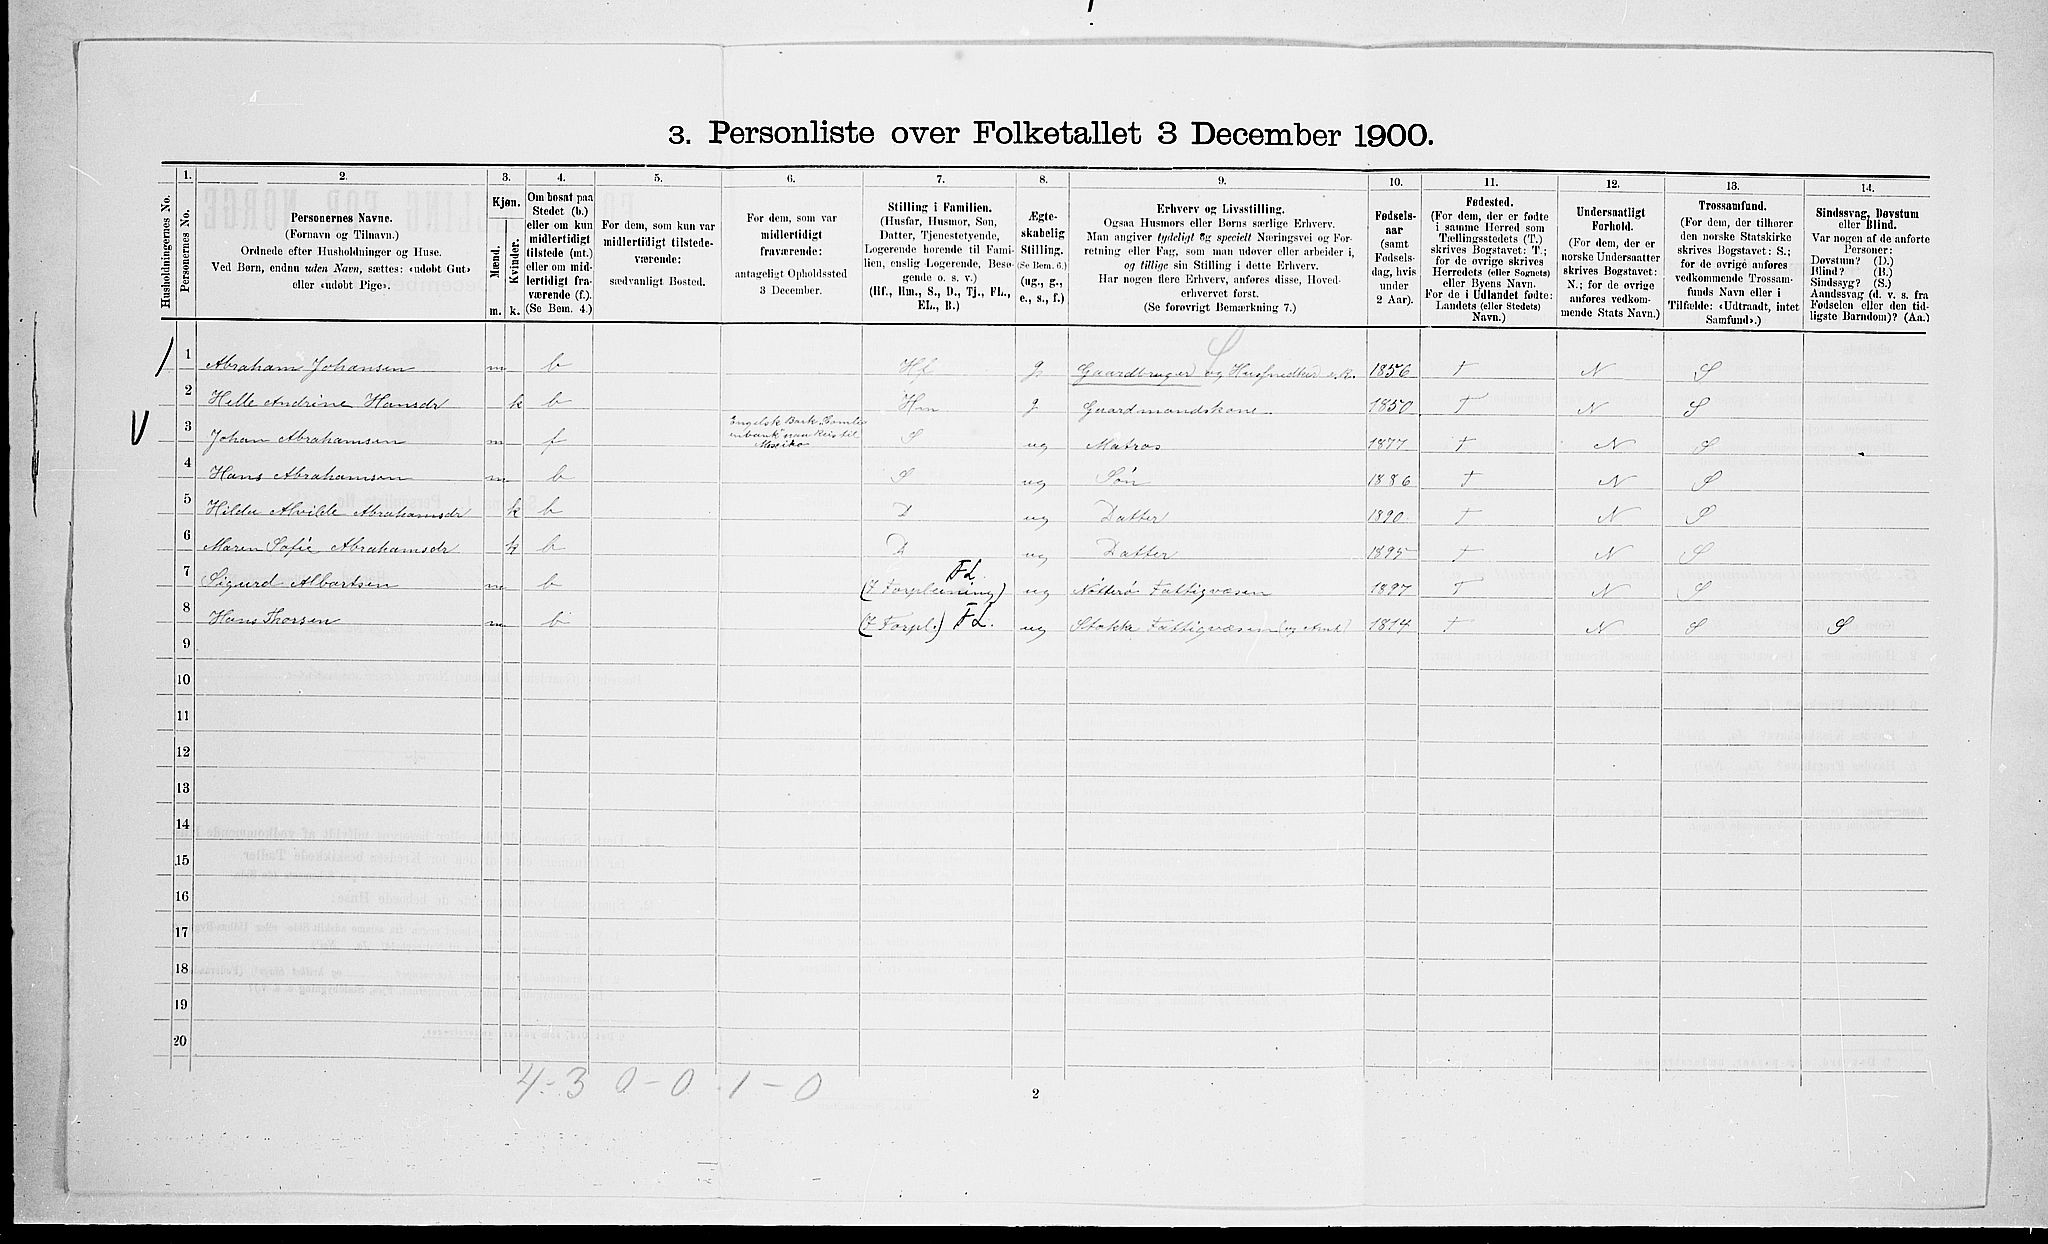 3. Personliste over Folketallet 3 December 1900.
Husholdningernes No.
1.
Personernes No.
2.
Personernes Navne.
(Fornavn og Tilnavn.)
Ordnede efter Husholdninger og Huse.
Ved Børn, endnu uden Navn, sættes: «udøbt Gut»
eller «udøbt Pige».
3.
Kjøn.
Mænd.
Kvinder.
m. k.
4.
Om bosat paa
Stedet (b.)
eller om kun
midlertidigt
tilstede (mt.)
eller om mid-
lertidigt fra-
værende (f.).
(Se Bem. 4.)
5.
For dem, som kun var
midlertidigt tilstede-
værende:
sædvanligt Bosted.
6.
For dem, som var
midlertidigt
fraværende:
antageligt Opholdssted
3 December.
7.
Stilling i Familien.
(Husfar, Husmor, Søn,
Datter, Tjenestetyende,
Logerende hørende til Fami-
lien, enslig Logerende, Besø-
gende o. s. v.)
(Hf., Hm., S., D., Tj., FL.,
EL., B.)
8.
Ægte-
skabelig
Stilling.
(Se Bem. 6.)
(ug., g.,
e., s., f.)
9.
Erhverv og Livsstilling.
Ogsaa Husmors eller Børns særlige Erhverv.
Man angiver tydeligt og specielt Næringsvei og For-
retning eller Fag, som man udøver eller arbeider i,
og tillige sin Stilling i dette Erhverv.
Har nogen flere Erhverv, anføres disse, Hoved-
erhvervet først.
(Se forøvrigt Bemærkning 7.)
10.
Fødsels-
aar
(samt
Fødsels-
dag, hvis
under
2 Aar).
11.
Fødested.
(For dem, der er fødte
i samme Herred som
Tællingsstedets (T.)
skrives Bogstavet: T.;
for de øvrige skrives
Herredets (eller Sognets)
eller Byens Navn.
For de i Udlandet fødte:
Landets (eller Stedets)
Navn.)
12.
Undersaatligt
Forhold.
(For dem, der er
norske Undersaatter
skrives Bogstavet:
N.; for de øvrige
anføres vedkom-
mende Stats Navn.)
13.
Trossamfund.
(For dem, der tilhører
den norske Statskirke
skrives Bogstavet: S.;
for de øvrige anføres
vedkommende Trossam-
funds Navn eller i
Tilfælde: «Udtraadt, intet
Samfund».)
14.
Sindssvag, Døvstum
eller Blind.
Var nogen af de anførte
Personer:
Døvstum? (D.)
Blind? (B.)
Sindssyg? (S.)
Aandssvag (d. v. s. fra
Fødselen eller den tid-
ligste Barndom)? (Aa.)
1 Abraham Johansen m b Hf g Gaardbruger og 1856 T N S
2 Helle Andrine Hansdr k b Hm g Gaardmandskone 1850 T N S
3 Johan Abrahamsen m f Engelsk Bark til S ug Matros 1877 T N S
4 Hans Abrahamsen m b S ug Søn 1886 T N S
5 Hilda Alvilde Abrahamsdr k b D ug Datter 1890 T N S
6 Maren Sofie Abrahamsdr k b D ug Datter 1895 T N S
7 Sigurd Albertsen m b (I Forpleining) FL. ug Nøtterø Fattigvæsen 1897 T N S
8 Hans Thorsen m b (I Forpl.) FL. ug Stokke Fattigvæsen (og Amt) 1814 T N S S
9
10
11
12
13
14
15
16
17
18
19
20
4-3 0-0 1-0
2